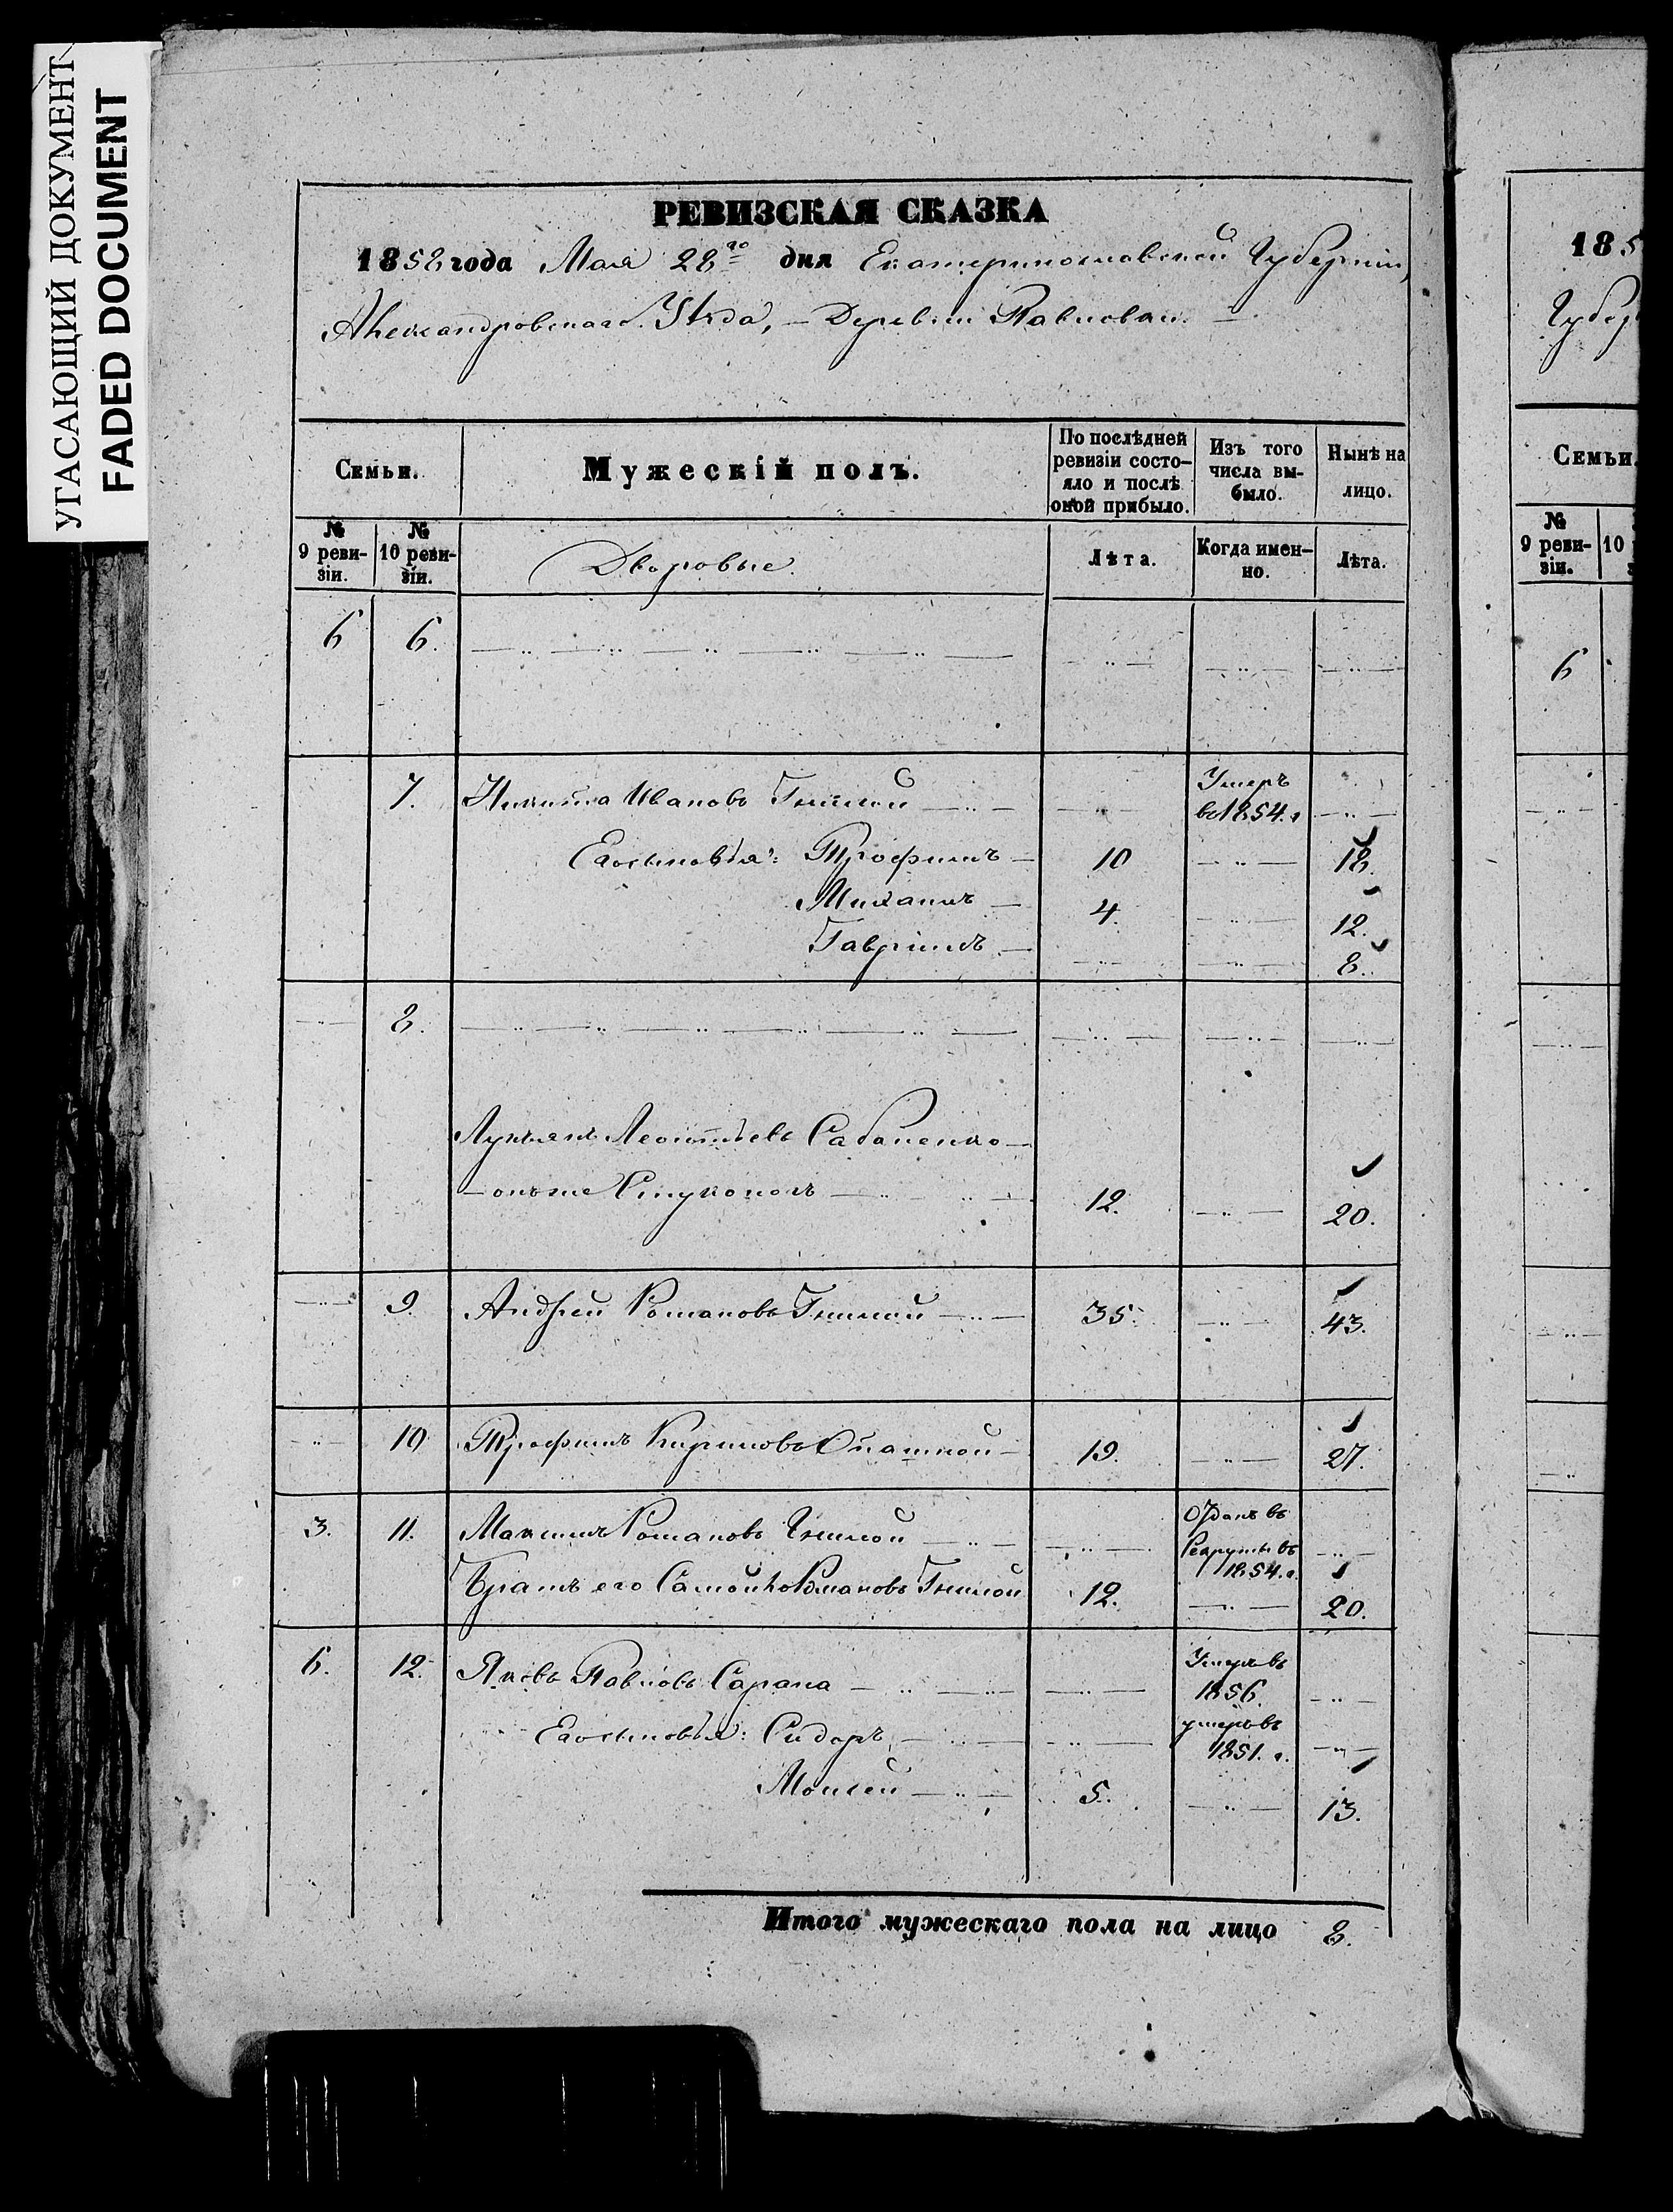 УГАСАЮЩИЙ ДОКУМЕНТ
FADED DOCUMENT
РЕВИЗСКАЯ СКАЗКА
1858 года Мая 28го дня Екатеринославской Губернии,
Александровскаго Уѣзда, – Деревни Павловки.
Семьи. Мужескій полъ. По послѣдней ревизіи состояло и послѣ оной прибыло. Изъ того числа выбыло. Нынѣ на лицо.
№ 9 ревизіи. № 10 ревизіи. Дворовые. Лѣта. Когда именно. Лѣта.
6 6.
7. Никита Ивановъ Гнилой Умеръ в 1854. г
Его сыновья: Трофимъ 10 18.
Михаилъ 4. 12.
Гаврiилъ 8.
8.
Лукьянъ Леонтьевъ Сабаненко
онъ же 12. 20.
9. Андрей Романовъ Гнилой 35. 43.
10 Трофимъ Кириловъ 19. 27.
3. 11. Максимъ Романовъ Гнилой Отданъ въ Рекруты въ 1854. г.
Братъ его Самойло Романовъ Гнилой 12. 20.
6. 12. Яковъ Павловъ Сарана Умеръ въ 1856.
Его сыновья: Сидоръ умеръ въ 1851. г.
Моисей 5. 13.
Итого мужескаго пола на лицо 8.
185
Губер
Семьи.
№ 9 ревизіи. 10
6